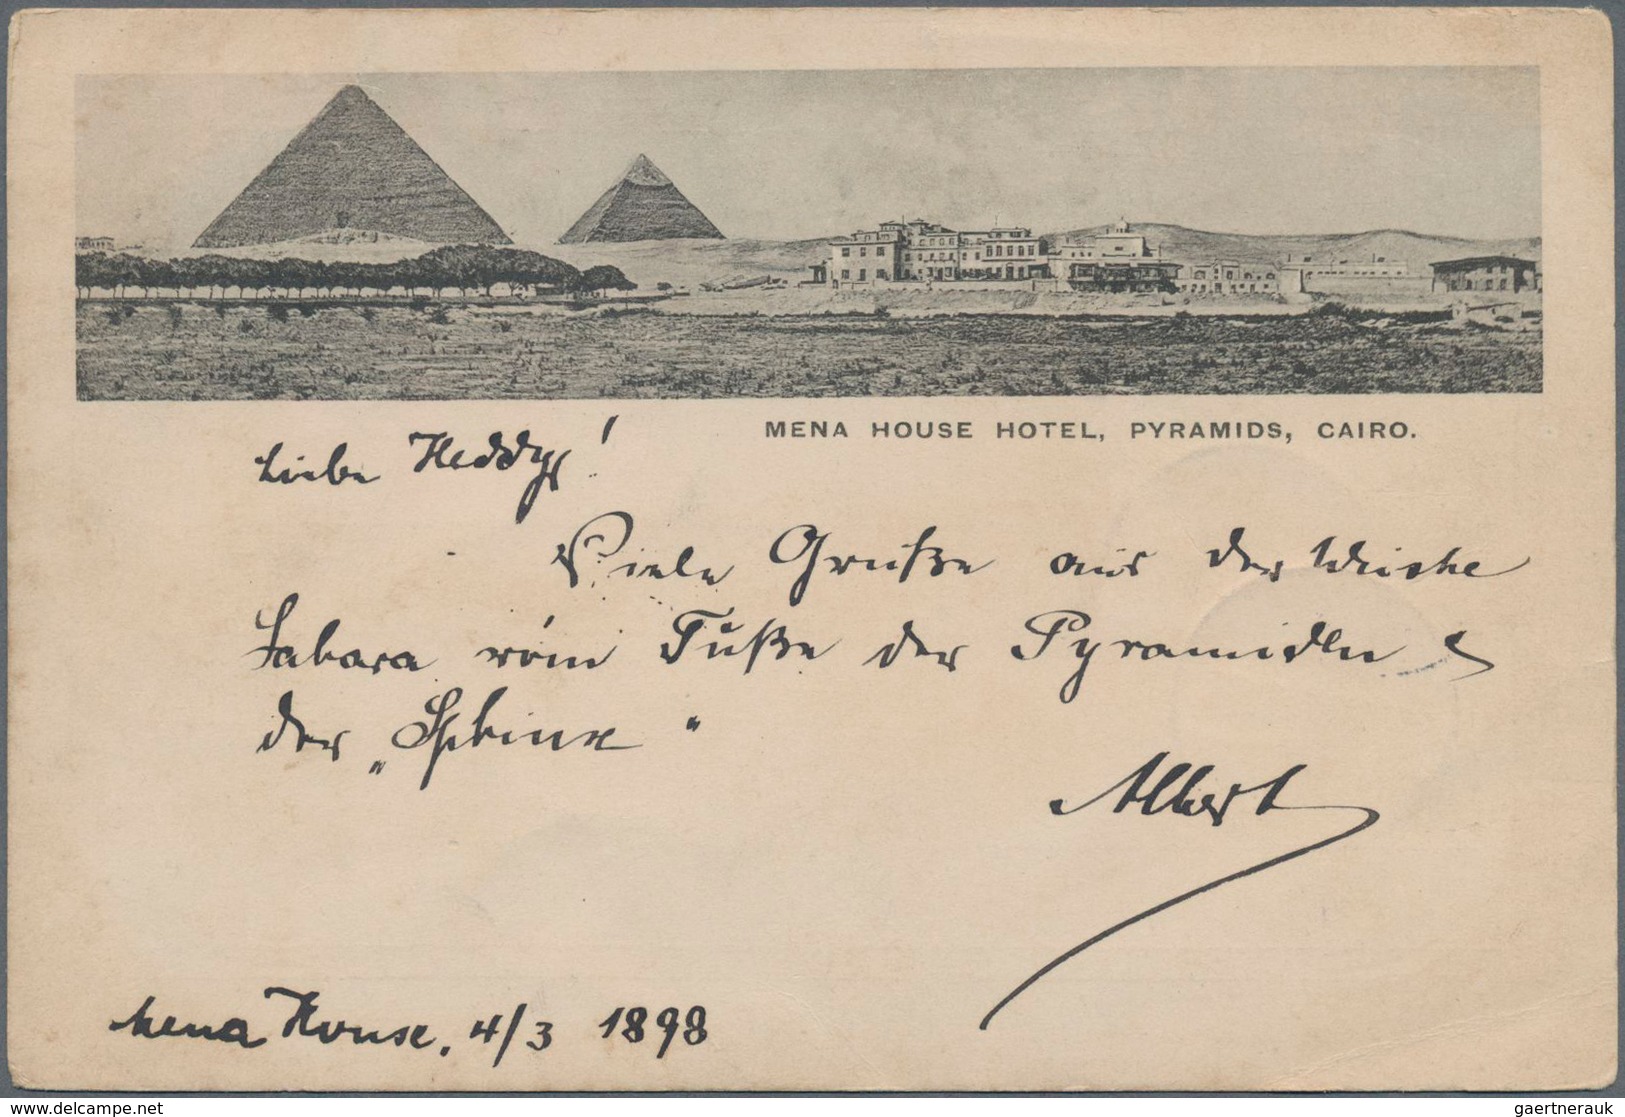 MENA HOUSE HOTEL, PYRAMIDS, CAIRO.
Liebe Heddy!
Viele Grüße aus der Wüste
Sahara vom Fuße der Pyramiden &
der „Sphinx"
Albert
Mena House, 4/3 1898
© delcampe.net
gaertnerauk